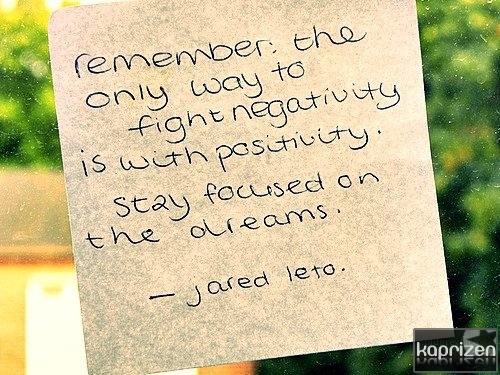 remember: the
only way to
fight negativity
is with positivity.
stay focused on
the dreams.
— jared leto.
kaprizen